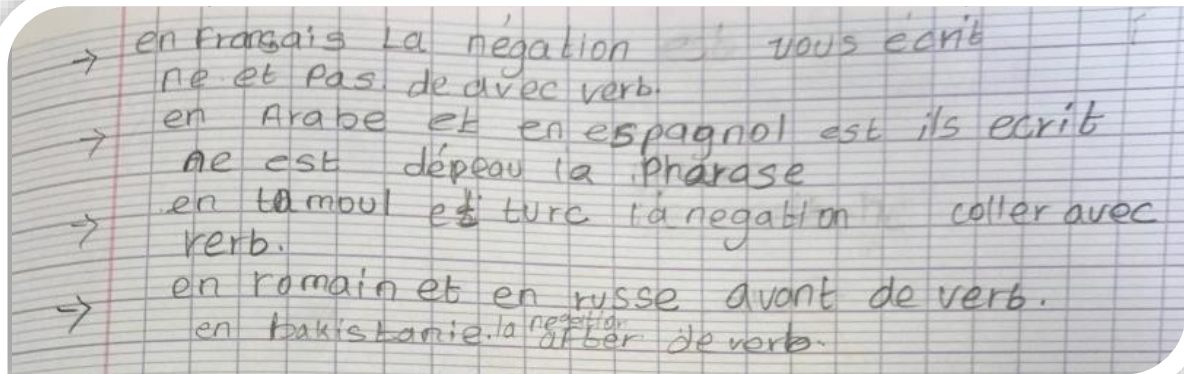 → en Français La négation vous écrit
ne et Pas. de avec verb.
→ en Arabe et en espagnol est ils ecrit
ne est dépeau la Pharase
→ en tamoul et turc la negation coller avec
verb.
→ en romain et en russe avant de verb.
en bakistanie. la negation arter de verb.